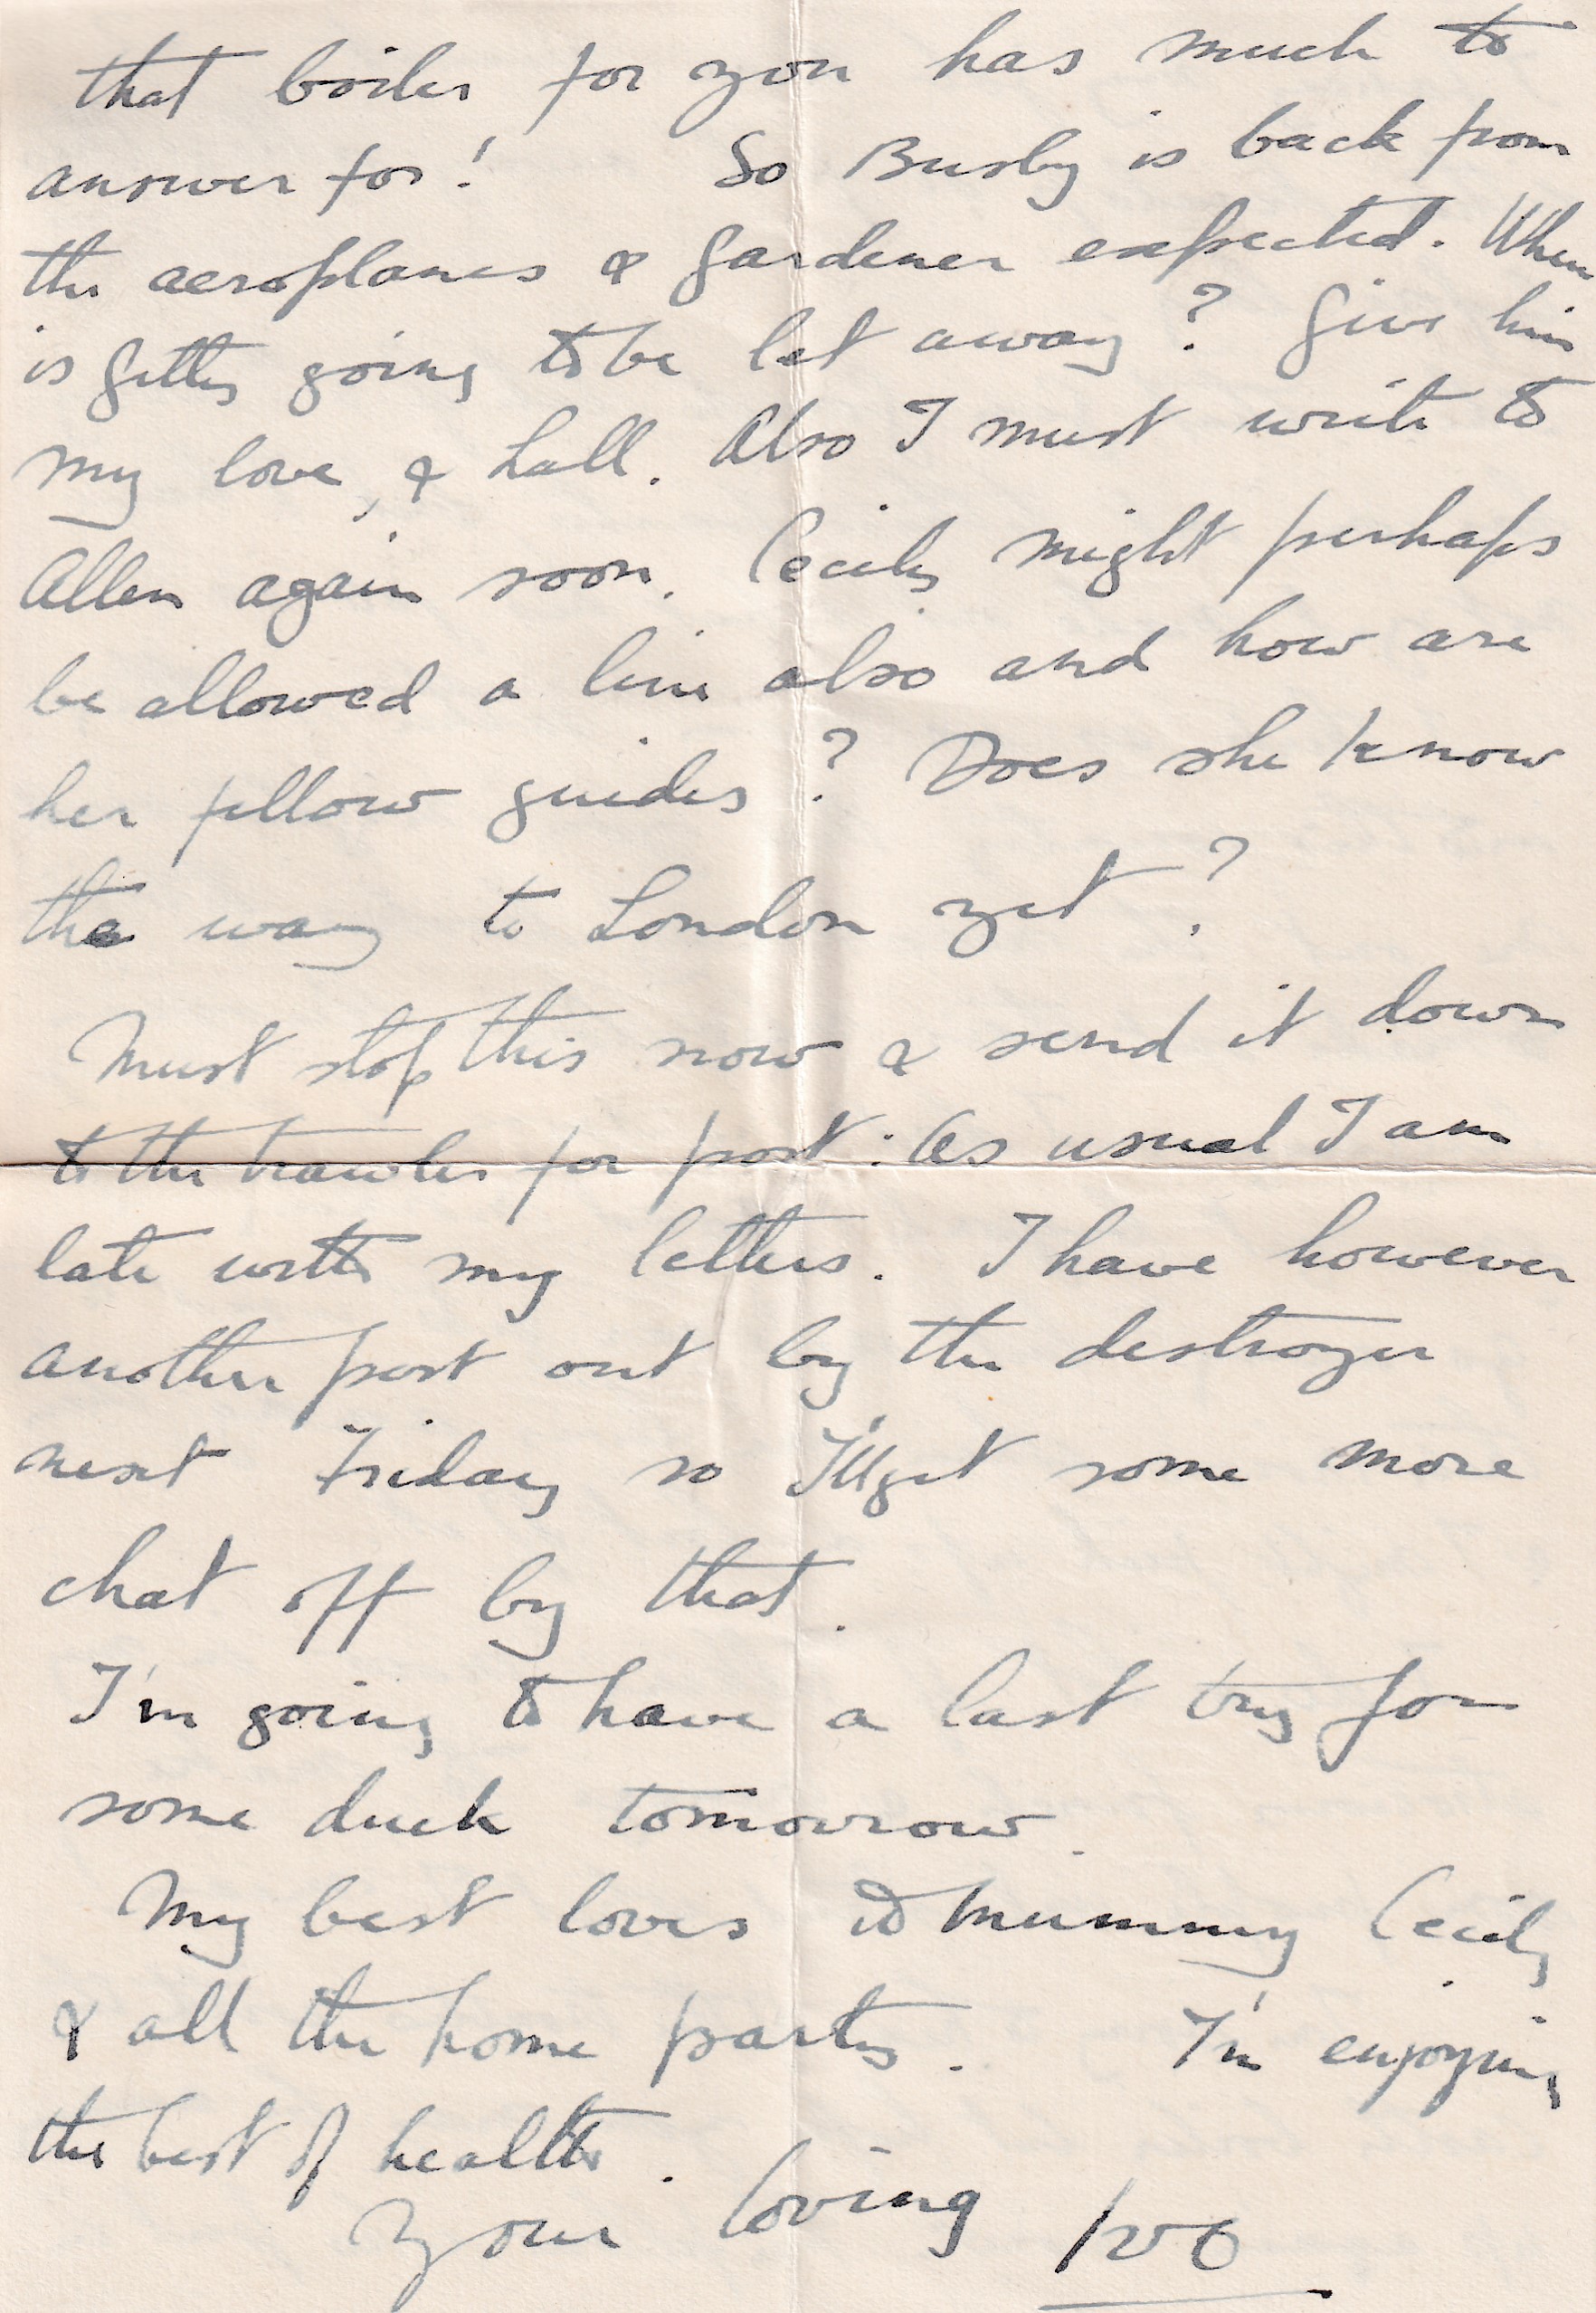 that boiler for you has much to
answer for! So Busby is back from
the aeroplanes & Gardener expected. When
is Getty going to be let away? Give him
my love, & Lall. Also I must write to
Allen again soon. Cecily might perhaps
be allowed a line also and how are
her fellow guides? Does she know
the way to London yet?
Must stop this now & send it down
to the trawler for post: As usual I am
late with my letters. I have however
another post out by the destroyer
next Friday so I'll get some more
chat off by that.
I'm going to have a last try for
some duck tomorrow.
My best loves to Mummy Cecily
& all the home party. I'm enjoying
the best of health.
Your loving Ivo